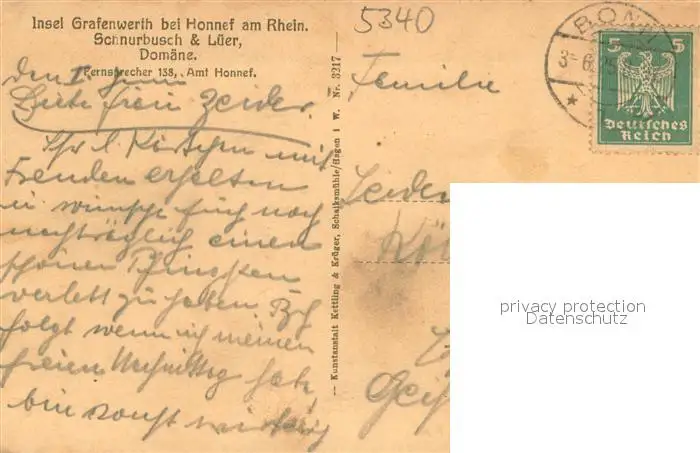 Insel Grafenwerth bei Honnef am Rhein.
Schnurbusch & Lüer,
Domäne.
Fernsprecher 138, Amt Honnef.
Liebe Frau Zeider.
Kärtchen mit
Freuden erhalten
u wünsche Euch noch
nachträglich einen
schönen Pfingsten
verlebt zu haben
folgt wenn ich meinen
freien Nachmittag habe,
bin sonst
— Kunstanstalt Kettling & Krüger, Schalksmühle/Hagen i W. Nr. 3217 —
5340
BONN
5 5
Deutsches
Reich
Familie
Zeider
Köl
privacy protection
Datenschutz